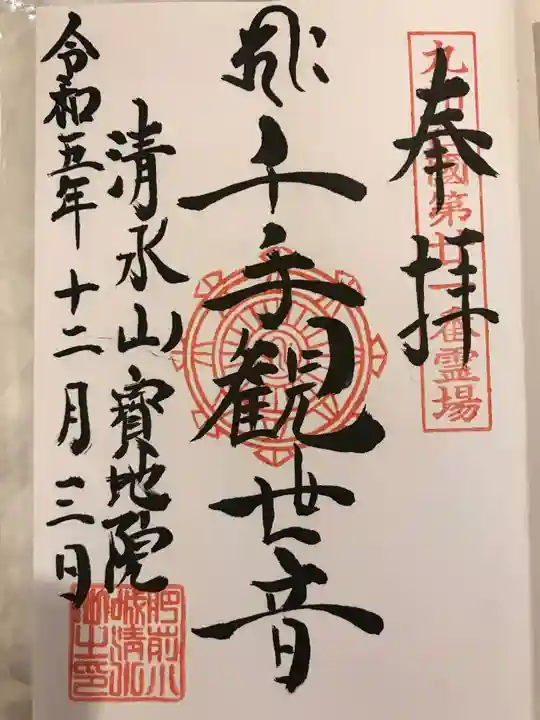 奉拝
九州西國第廿一番霊場
千手観世音
清水山寳地院
令和五年十二月三日
肥前小城清水山之印